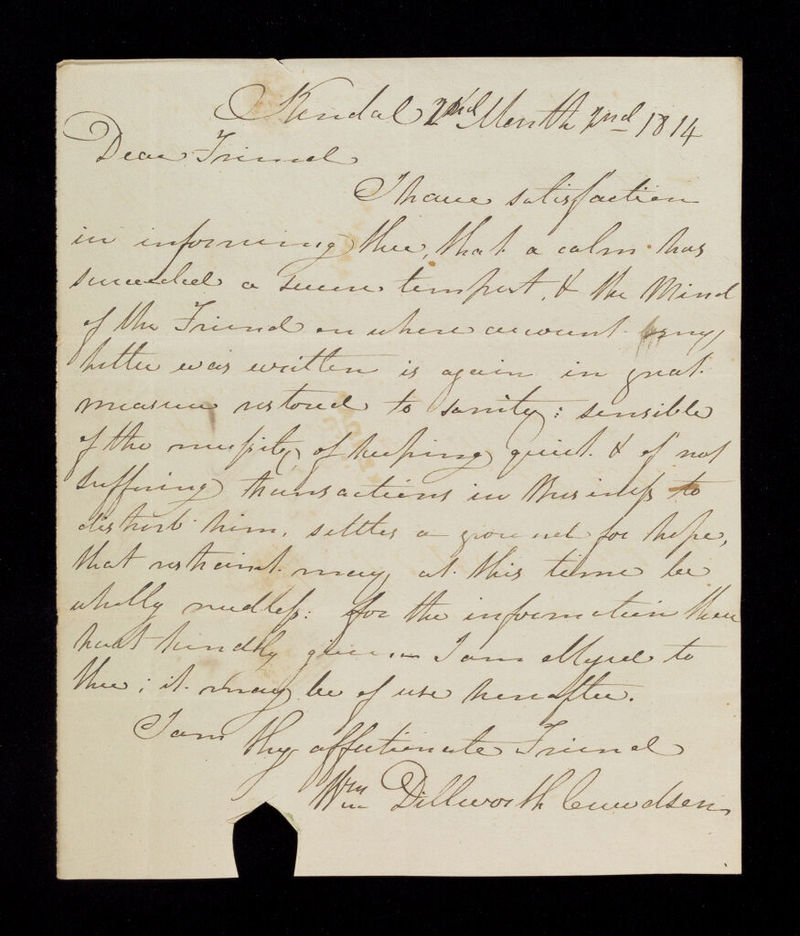 Kendal 2nd Month 2nd 1814
Dear Friend
I have satisfaction
in informing thee, that a calm has
succeeded a severe tempest, & the Mind
of the Friend on whose account my
letter was written is again in great
measure restored to sanity: sensible
of the necessity of keeping quiet & of not
suffering transactions in Business to
disturb him, settles a ground for hope,
that restraint may at this time be
wholly needless: for the information thou
hast kindly given I am obliged to
thee; it may be of use hereafter.
I am thy affectionate Friend
Wm Dillworth Crewdson